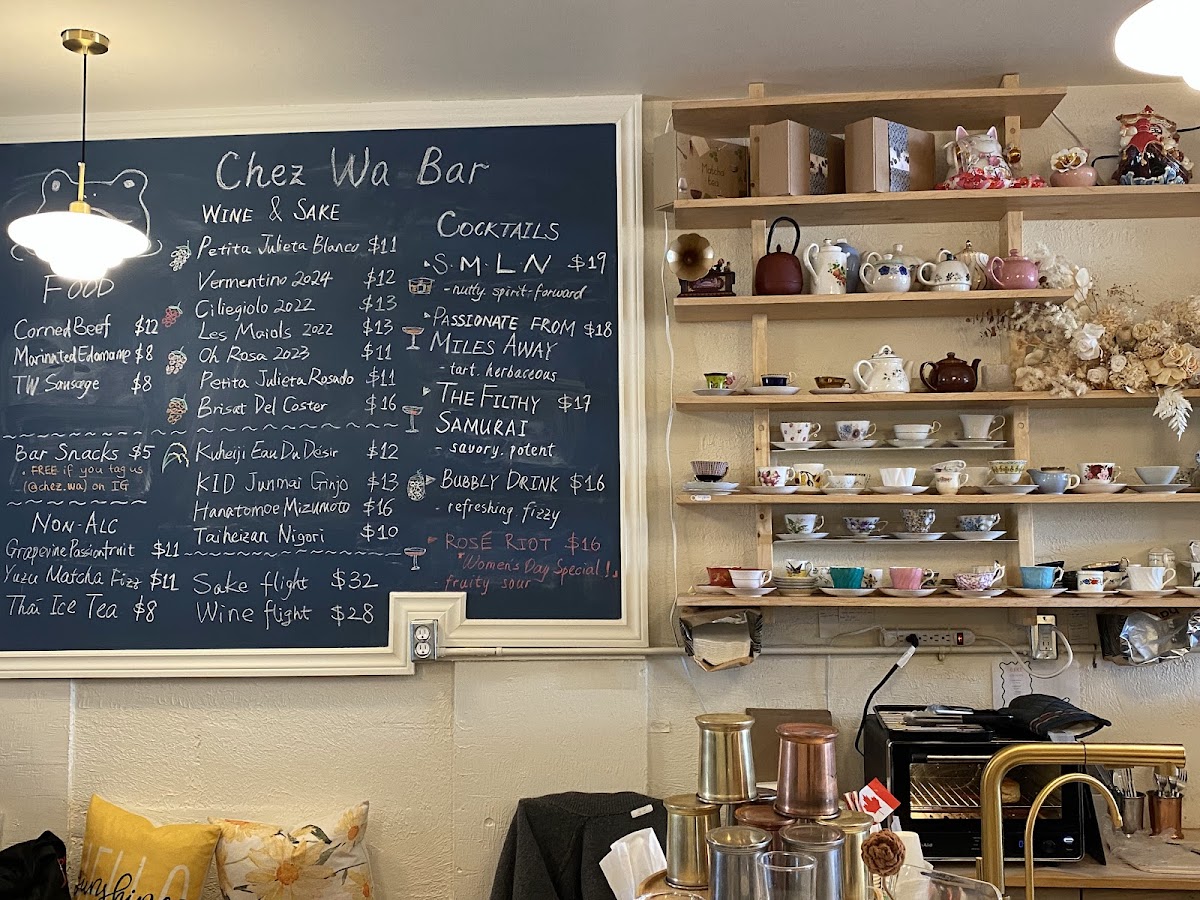 Chez Wa Bar
FOOD
Corned Beef $12
Marinated Edamame $8
TW Sausage $8
Bar Snacks $5
. FREE if you tag us
(@chez.wa) on IG
NON-ALC
Grapevine Passionfruit $11
Yuzu Matcha Fizz $11
Thai Ice Tea $8
WINE & SAKE
Petita Julieta Blanco $11
Vermentino 2024 $12
Ciliegiolo 2022 $13
Les Maiols 2022 $13
Oh Rosa 2023 $11
Petita Julieta Rosado $11
Brisat Del Coster $16
Kuheiji Eau Du Désir $12
KID Junmai Ginjo $13
Hanatomoe Mizumoto $16
Taiheizan Nigori $10
Sake flight $32
Wine flight $28
COCKTAILS
S.M.L.N $19
- nutty. spirit-forward
PASSIONATE FROM $18
MILES AWAY
- tart. herbaceous
THE FILTHY $17
SAMURAI
- savory. potent
BUBBLY DRINK $16
- refreshing fizzy
ROSÉ RIOT $16
"Women's Day Special!"
fruity sour
Matcha
HELLO